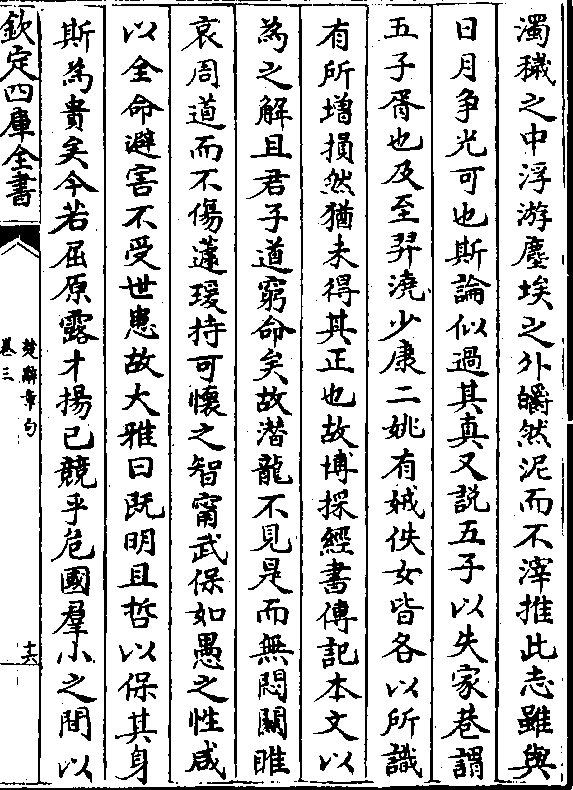 濁穢之中浮游塵埃之外皭然泥而不滓推此志雖與
日月争光可也斯論似過其真又説五子以失家巷謂
五子胥也及至羿澆少康二姚有娀佚女皆各以所識
有所增損然猶未得其正也故博採經書傳記本文以
為之解且君子道窮命矣故潜龍不見是而無悶關睢
哀周道而不傷蘧瑗持可懷之智甯武保如愚之性咸
以全命避害不受世患故大雅曰既明且哲以保其身
斯為貴矣今若屈原露才揚己競乎危國羣小之間以
欽定四庫全書
楚辭章句
卷三